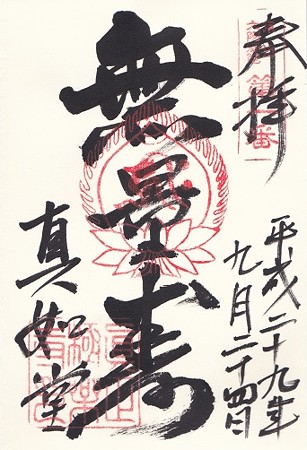 奉拝
平成二十九年
九月二十四日
無量寿
真如堂